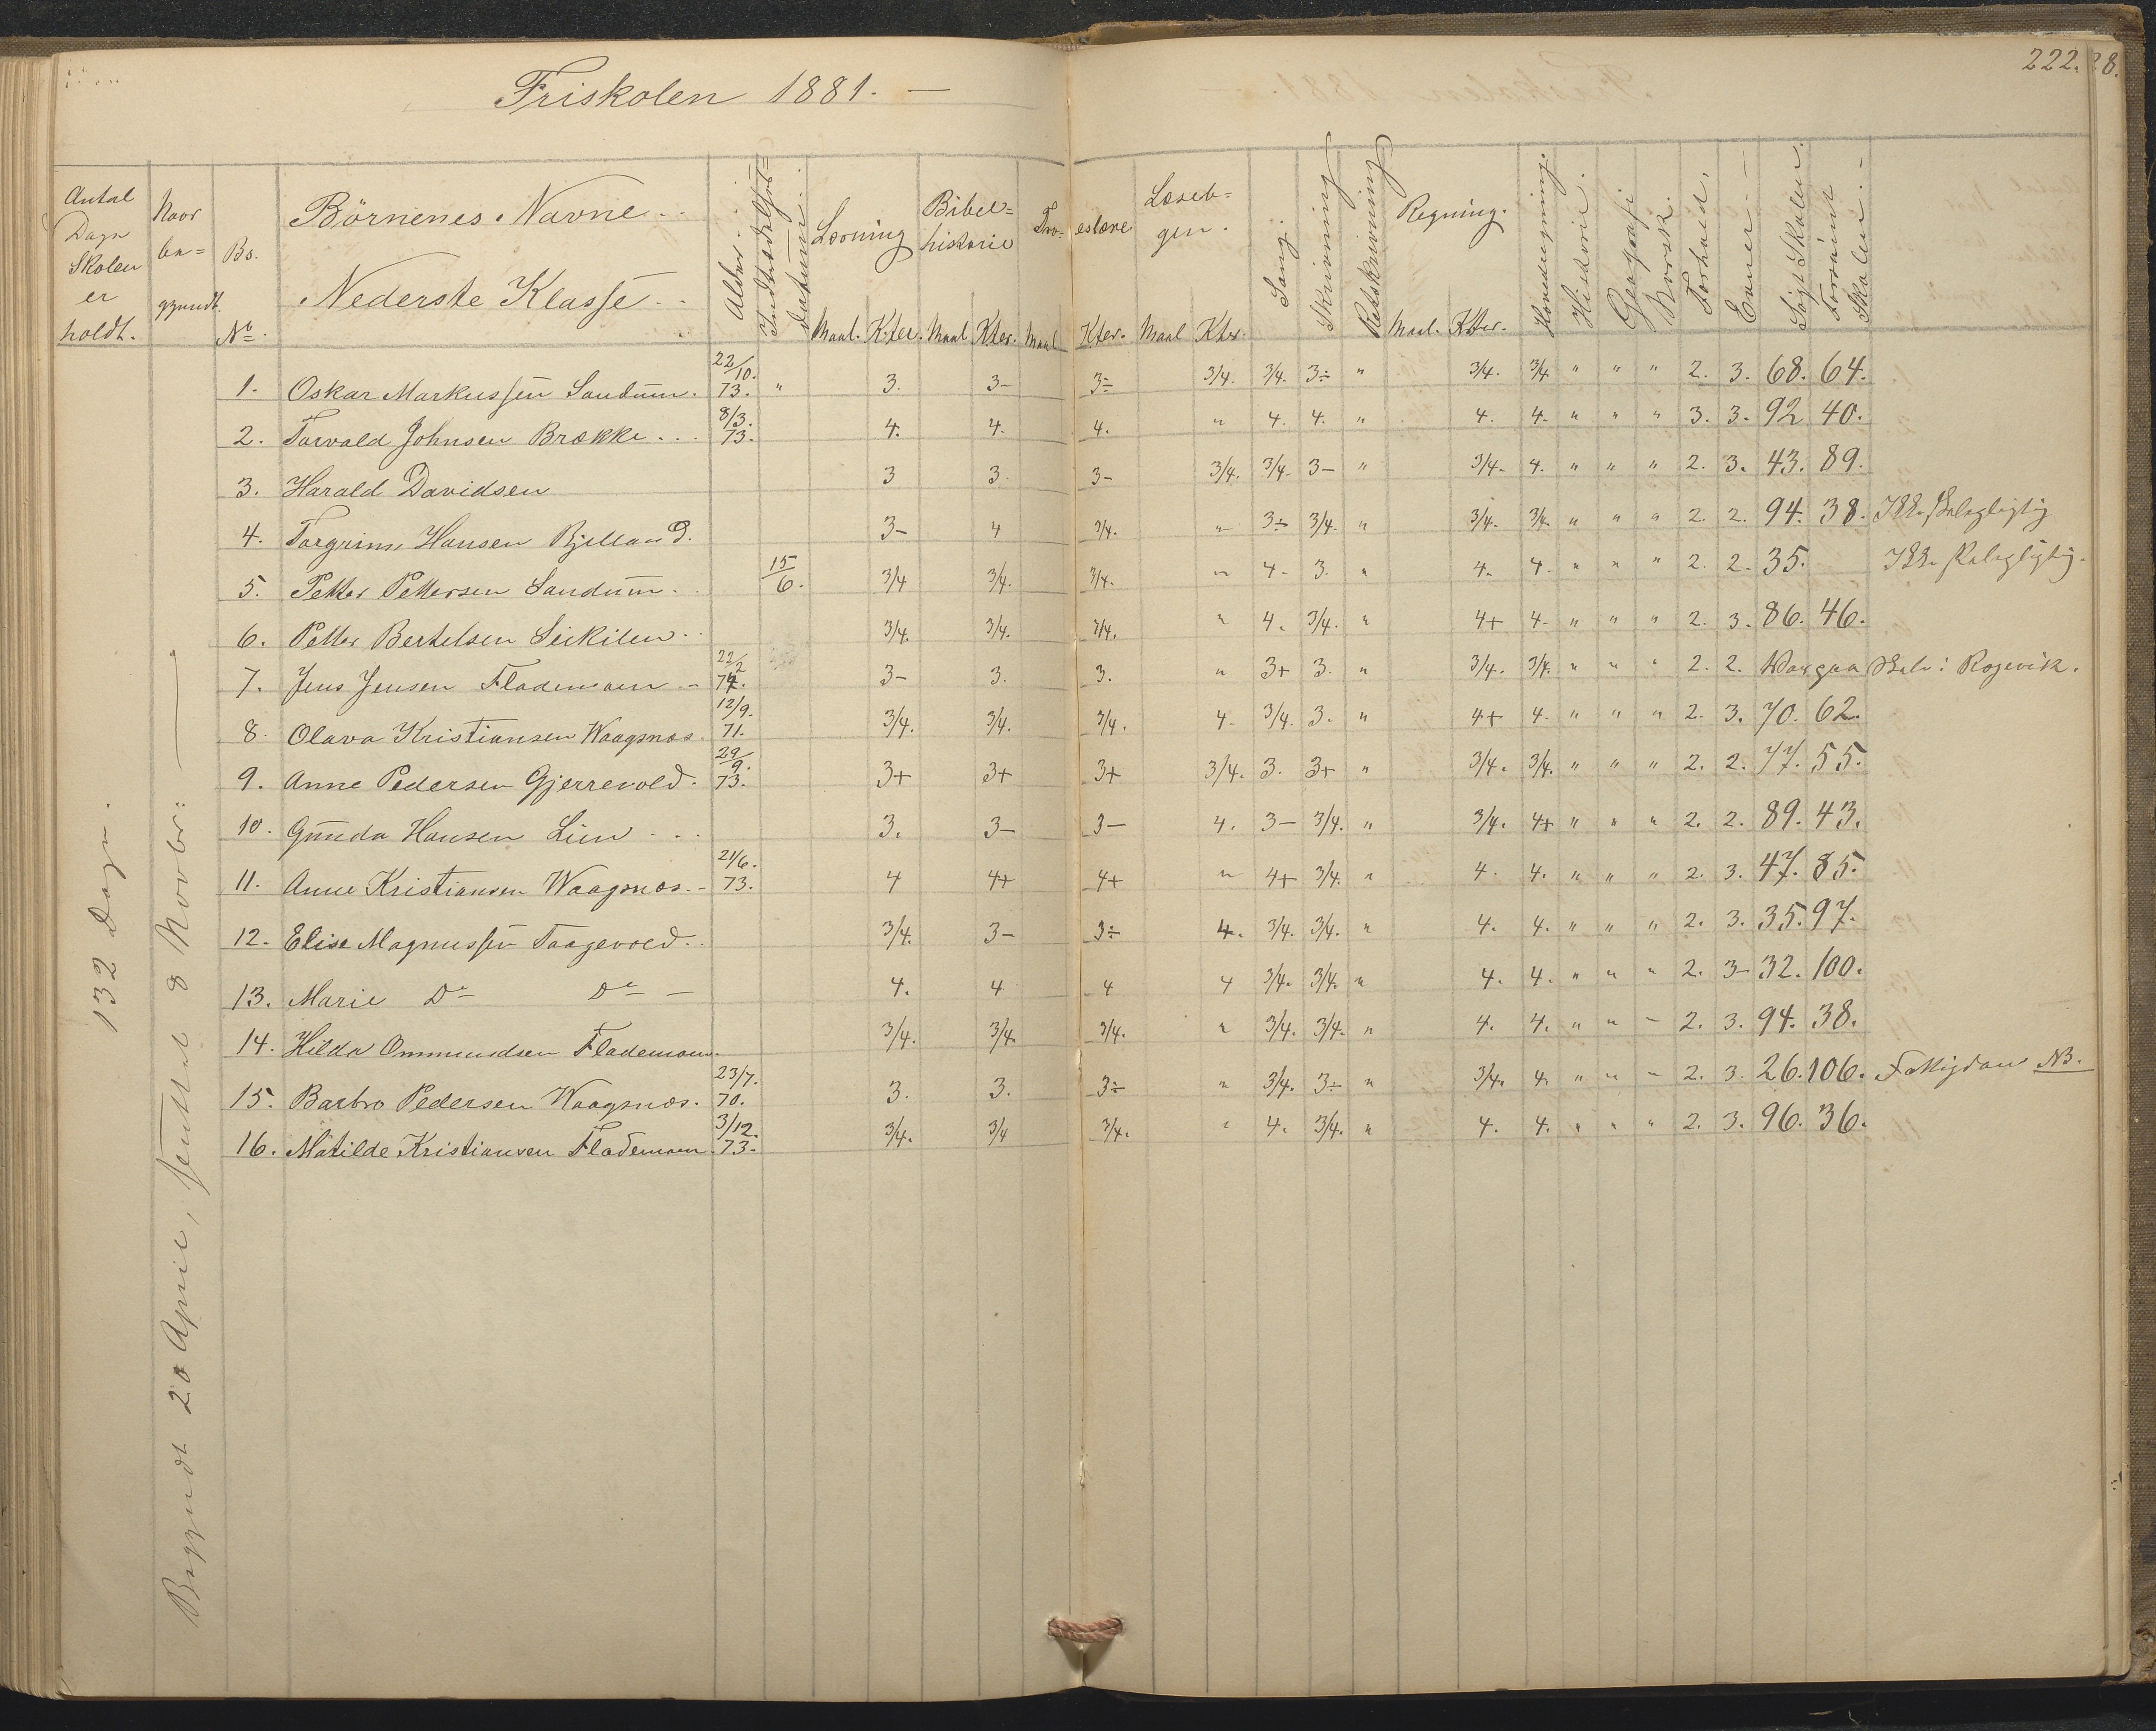 222. 28.
Friskolen 1881. —
Antal Dage Skolen er holdt.
Naar be= gyndt.
No.
Börnenes Navne
Nederste Klasse
Alder.
Indtrædelses= datum
Læsning
Maal. Kter.
Bibel= historie
Maal Kter.
Tro= eslære
Maal Kter.
Læseb= gen.
Maal Kter.
Sang.
Skrivning
Retskrivning
Regning.
Maal. Kter.
Hovedregning.
Historie.
Geografi
Norsk.
Forhold.
Evner.
Søgt Skolen.
Forsømt Skolen.
132 Dage.
Begyndt 20 April, sluttet 8 Novbr:
1. Oskar Markussen Sandum. 22/10. 73. " 3. 3- 3÷ 3/4. 3/4. 3÷ " 3/4. 3/4 " " " 2. 3. 68. 64.
2. Torvald Johnsen Brække 8/3. 73. 4. 4. 4. " 4. 4. " 4. 4. " " " 3. 3. 92 40.
3. Harald Davidsen 3 3. 3- 3/4. 3/4. 3- " 3/4. 4. " " " 2. 3. 43. 89.
4. Torgrim Hansen Bjelland. 3- 4 3/4. " 3÷ 3/4. " 3/4. 3/4. " " " 2. 2. 94. 38. Ikke skolepligtig
5. Petter Pettersen Sandum. 15/6. 3/4 3/4. 3/4. " 4. 3. " 4. 4. " " " 2. 2. 35. Ikke skolepligtig.
6. Petter Bertelsen 3/4. 3/4. 3/4. " 4. 3/4. " 4+ 4. " " " 2. 3. 86. 46.
7. Jens Jensen Flademoen 22/2 74. 3- 3. 3. " 3+ 3. " 3/4. 3/4. " " " 2. 2. i Rojevik.
8. Olava Kristiansen Waagsnæs. 12/9. 71. 3/4. 3/4. 3/4. 4. 3/4. 3. " 4+ 4. " " " 2. 3. 70. 62.
9. Anne Pedersen Gjerrevold. 29/9. 73. 3+ 3+ 3+ 3/4. 3. 3+ " 3/4. 3/4. " " " 2. 2. 77. 55.
10. Gunda Hansen Lien 3. 3- 3- 4. 3- 3/4. " 3/4. 4+ " " " 2. 2. 89. 43.
11. Anne Kristiansen Waagsnæs. 21/6. 73. 4 4+ 4+ " 4+ 3/4. " 4. 4. " " " 2. 3. 47. 85.
12. Elise Magnussen Taagevold. 3/4. 3- 3÷ 4. 3/4. 3/4. " 4. 4. " " " 2. 3. 35. 97.
13. Marie Do Do 4. 4 4 4 3/4. 3/4. " 4. 4. " " " 2. 3- 32. 100.
14. Hilda Ommundsen Flademoen. 3/4. 3/4. 3/4. " 3/4. 3/4. " 4. 4. " " - 2. 3. 94. 38.
15. Barbro Pedersen Waagsnæs. 23/7. 70. 3. 3. 3÷ " 3/4. 3÷ " 3/4. 4. " " - 2. 3. 26. 106. Fattigdom NB.
16. Matilde Kristiansen Flademoen. 3/12. 73. 3/4. 3/4 3/4. " 4. 3/4. " 4. 4. " " " 2. 3. 96. 36.